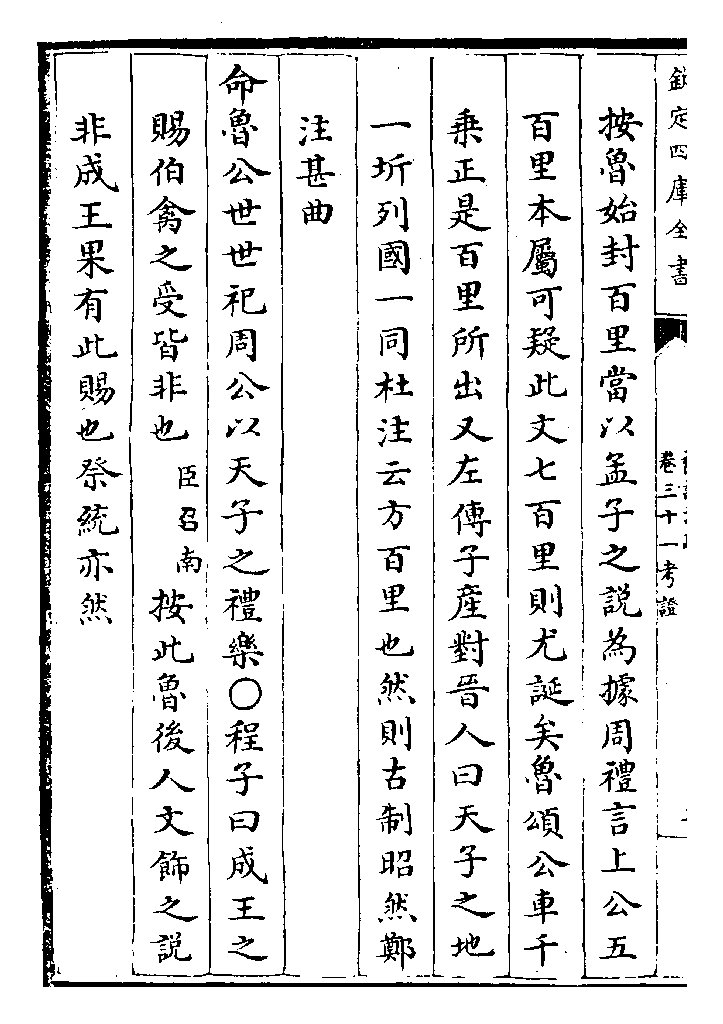 欽定四庫全書
卷三十一考證
按魯始封百里當以孟子之說為據周禮言上公五
百里本屬可疑此文七百里則尤誕矣魯頌公車千
乗正是百里所出又左傳子產對晉人曰天子之地
一圻列國一同杜注云方百里也然則古制昭然鄭
注甚曲
命魯公世世祀周公以天子之禮樂〇程子曰成王之
賜伯禽之受皆非也臣召南按此魯後人文飾之說
非成王果有此賜也祭統亦然